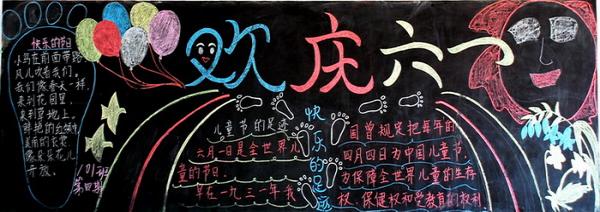 欢庆六一
快乐的节日
小鸟在前面带路
风儿吹着我们。
我们像春天一样,
来到花园里,
来到草地上。
鲜艳的红领巾
美丽的衣裳
像朵朵花儿
开放。
101班
第四期
儿童节的足迹
六月一日是全世界儿
童的节日.
早在一九三一年我
快乐的足迹
国曾规定把每年的
四月四日为中国儿童节.
为保障全世界儿童的生存
权、保健权和受教育的权利